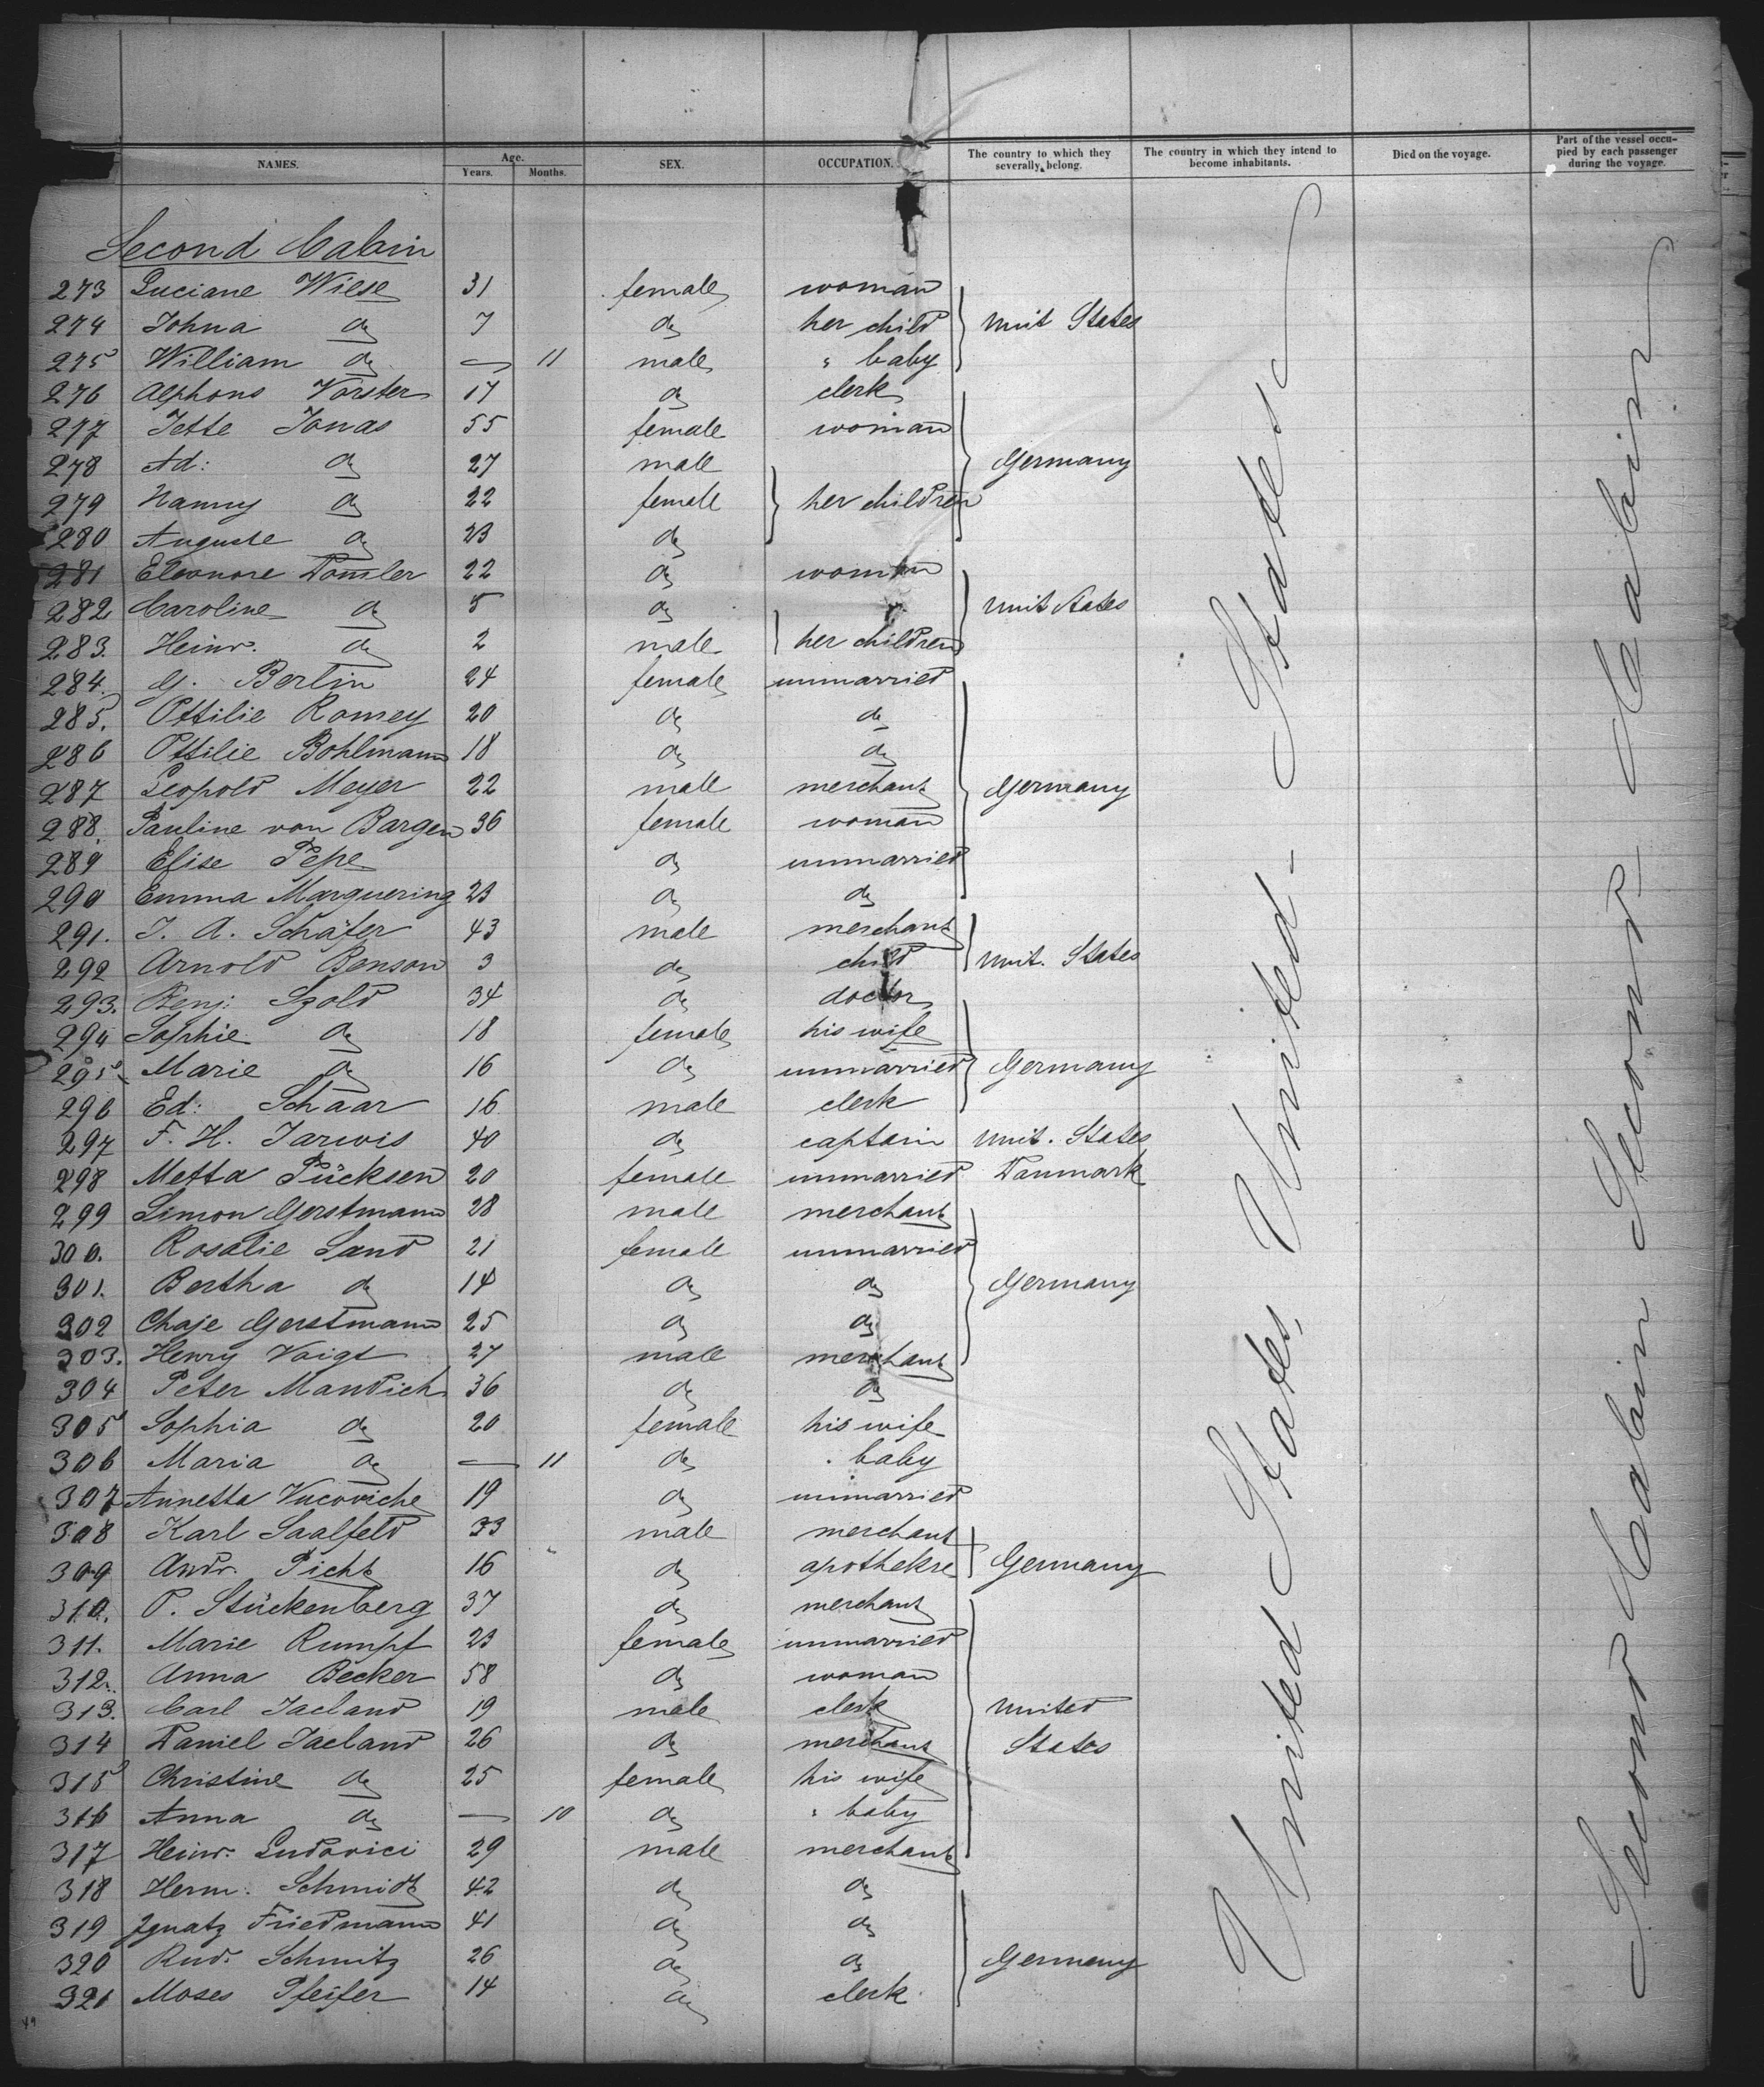 NAMES. Age. Years. Months. SEX. OCCUPATION. The country to which they severally belong. The country in which they intend to become inhabitants. Died on the voyage. Part of the vessel occupied by each passenger during the voyage.
Second Cabin
273 Luciane Wiese 31 female woman
274 Johna do 7 do her child Unit States
275 William do — 11 male " baby
276 Alphons Vorster 17 do clerk
277 Jette Jonas 55 female woman
278 Ad: do 27 male Germany
279 Nanny do 22 female her children
280 Auguste do 23 do
281 Eleonore 22 do woman
282 Caroline do 5 do Unit States
283. Heinr. do 2 male her children
284. G. Berlin 24 female unmarried
285. Ottilie Romey 20 do do
286 Ottilie Bohlmann 18 do do
287 Leopold Meyer 22 male merchant Germany
288. Pauline von Bargen 36 female woman
289 Elise Pepe do unmarried
290 Emma Marquering 23 do do
291. J. A. Schäfer 43 male merchant
292 Arnold Benson 3 do child Unit. States
293. Benj: Szold 34 do doctor
294 Sophie do 18 female his wife
295 Marie do 16 do unmarried Germany
296 Ed: Schaar 16 male clerk
297 F. H. Jarwis 40 do captain Unit. States
298 Metta Pücksen 20 female unmarried Danmark
299 Simon Gerstmann 28 male merchant
300. Rosalie Sand 21 female unmarried
301. Bertha do 14 do do Germany
302 Chaje Gerstmann 25 do do
303. Henry Voigt 27 male merchant
304 Peter Mandich 36 do do
305 Sophia do 20 female his wife
306 Maria do — 11 do " baby
307 Annetta Vucoviche 19 do unmarried
308 Karl Saalfeld 33 male merchant
309 Andr. Picht 16 do apothekre Germany
310. P. Stückenberg 37 do merchant
311. Marie Rumpf 23 female unmarried
312. Anna Becker 58 do woman
313. Carl Jaeland 19 male clerk United
314 Daniel Jaeland 26 do merchant States
315 Christine do 25 female his wife
316 Anna do — 10 do " baby
317 Heinr. Ludovici 29 male merchant
318 Herm: Schmidt 42 do do
319 Ignatz Friedmann 41 do do
320 Rud. Schmitz 26 do do Germany
321 Moses Pfeifer 14 do clerk
United States, United - States
Second Cabin Second - Cabin